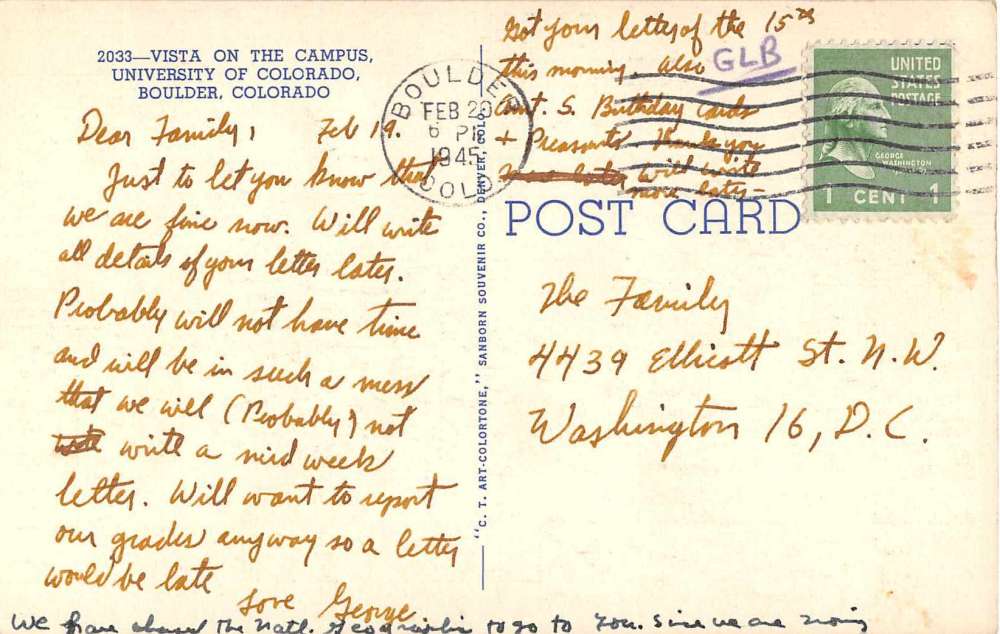 2033—VISTA ON THE CAMPUS,
UNIVERSITY OF COLORADO,
BOULDER, COLORADO
Dear Family, Feb 19.
Just to let you know that
we are fine now. Will write
all details of your letter later.
Probably will not have time
and will be in such a mess
that we will (Probably) not
write a mid week
letter. Will want to report
our grades anyway so a letter
would be late
Love George
We have the Natl. Geographic to go to you. Since we are
"C. T. ART-COLORTONE," SANBORN SOUVENIR CO., DENVER, COLO.
Got your letter of the 15th
this morning. Also
GLB
Aunt. S. Birthday cards
+ Presents. Thank you
more later will write
more later—
BOULDER
FEB 20
6 PM
1945
COLO.
UNITED
STATES
POSTAGE
GEORGE
WASHINGTON
1 CENT 1
POST CARD
The Family
4439 Ellicott St. N.W.
Washington 16, D.C.